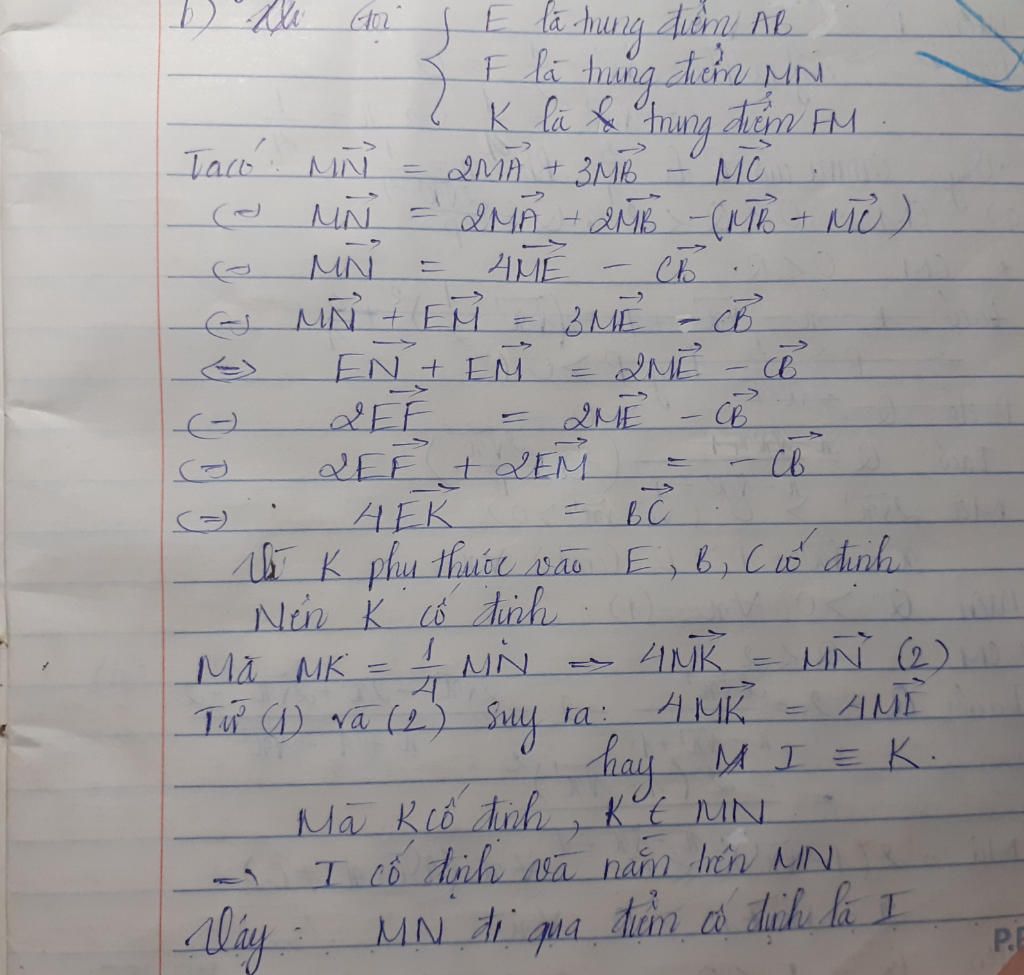 b) Gọi { E là trung điểm AB
F là trung điểm MN
K là trung điểm FM.
Ta có: MN⃗ = 2MA⃗ + 3MB⃗ - MC⃗.
(=) MN⃗ = 2MA⃗ + 2MB⃗ - (MB⃗ + MC⃗)
(=) MN⃗ = 4ME⃗ - CB⃗.
(=) MN⃗ + EM⃗ = 3ME⃗ - CB⃗
<=> EN⃗ + EM⃗ = 2ME⃗ - CB⃗
(=) 2EF⃗ = 2ME⃗ - CB⃗
(=) 2EF⃗ + 2EM⃗ = - CB⃗
(=) 4EK⃗ = BC⃗
Vì K phụ thuộc vào E, B, C cố định
Nên K cố định
Mà MK = 1/4 MN => 4MK⃗ = MN⃗ (2)
Từ (1) và (2) suy ra: 4MK⃗ = 4MI⃗
hay I ≡ K.
Mà K cố định, K ∈ MN
=> I cố định và nằm trên MN
Vậy: MN đi qua điểm cố định là I
P.P